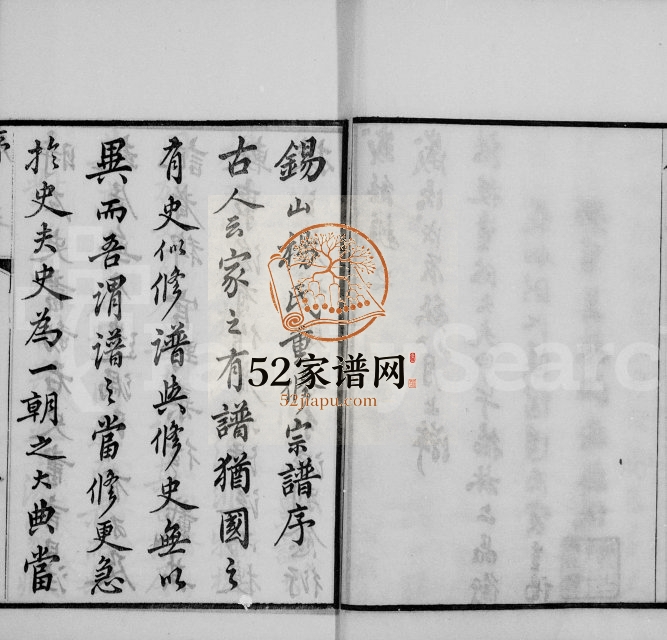 錫山楊氏重修宗譜序
古人云家之有譜猶國之
有史似修譜與修史無以
異而吾謂譜之當修更急
於史夫史為一朝之大典當
52家谱网
52jiapu.com
Search